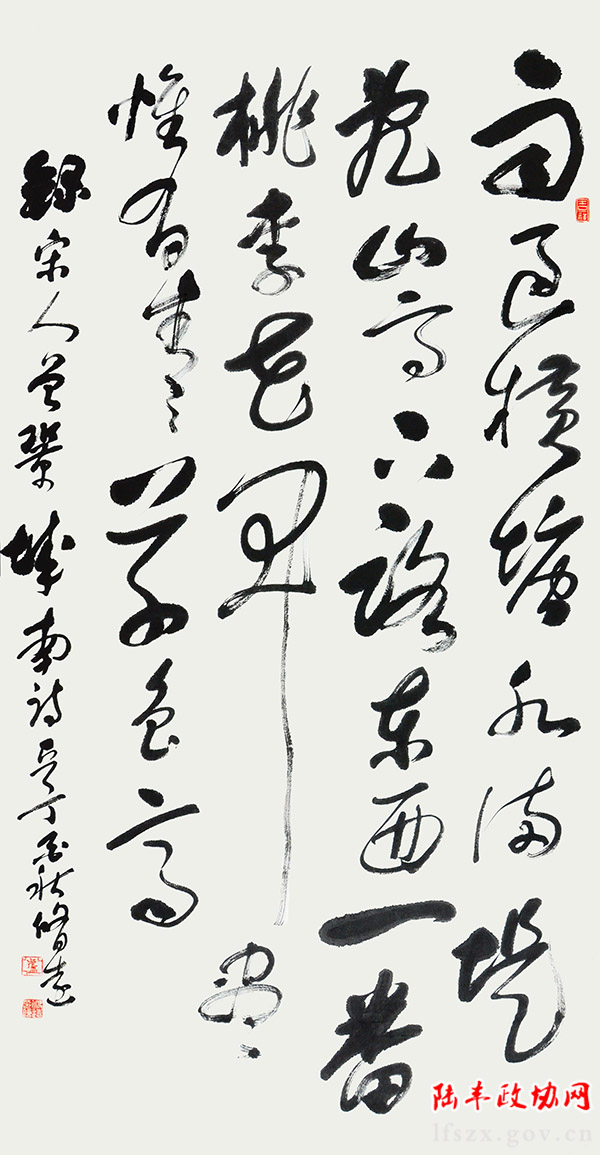 雨過橫塘水滿堤
亂山高下路東西一番
桃李花開盡
惟有青青草色齊
錄宋人曾鞏城南詩丁酉秋脩遠
陆丰政协网
lfszx.gov.cn